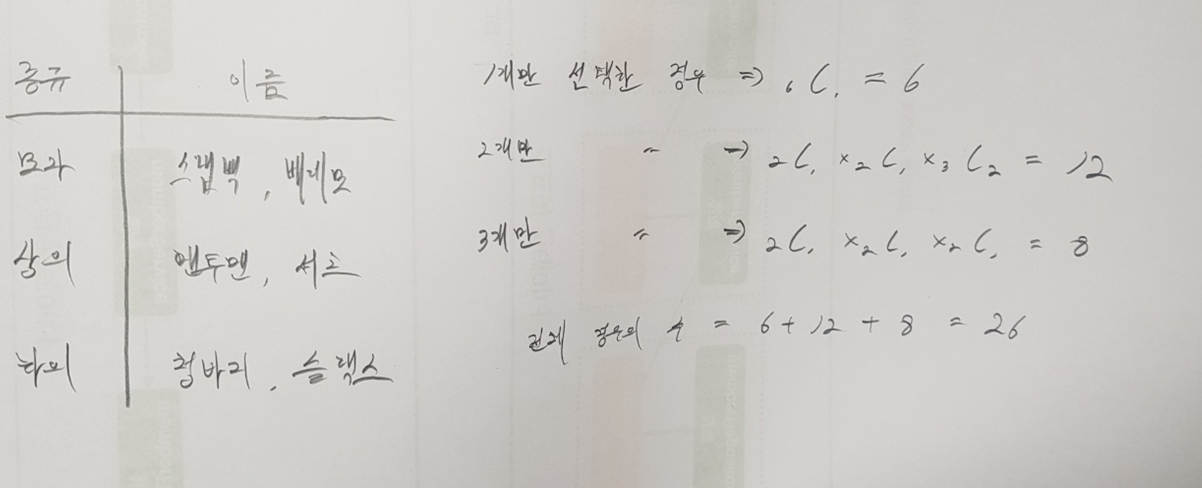 종류 이름
모자 스냅백, 베레모
상의 맨투맨, 셔츠
하의 청바지, 슬랙스
1개만 선택한 경우 ⇒ ₆C₁ = 6
2개만 〃 ⇒ ₂C₁ ×₂C₁ ×₃C₂ = 12
3개만 〃 ⇒ ₂C₁ ×₂C₁ ×₂C₁ = 8
전체 경우의 수 = 6 + 12 + 8 = 26